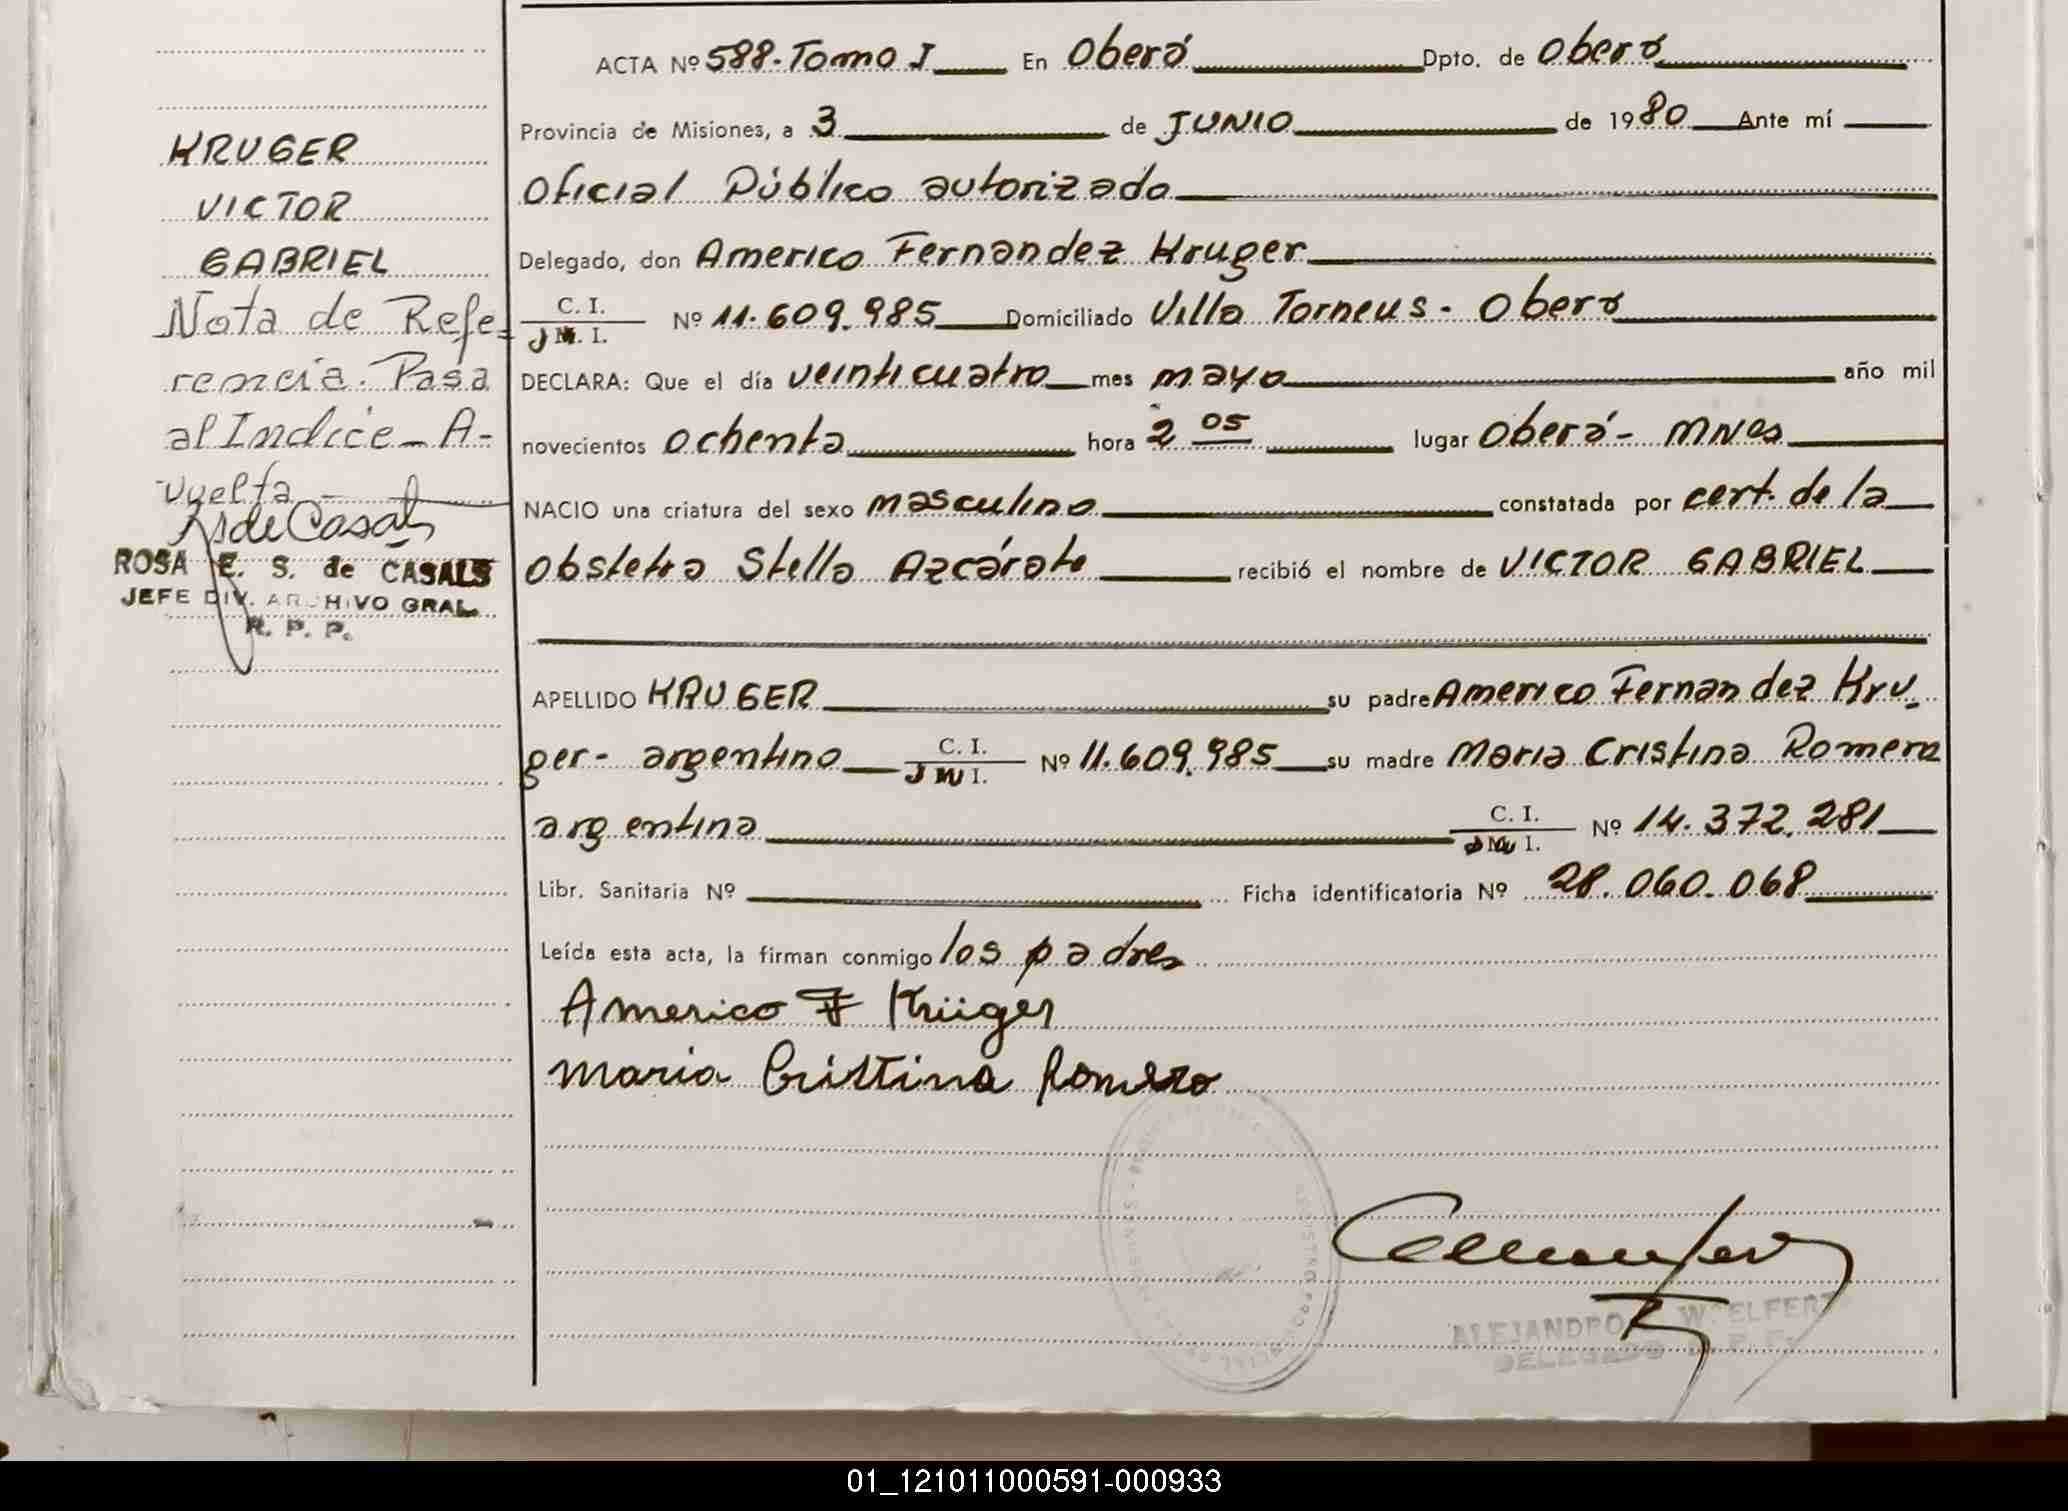 KRUGER
VICTOR
GABRIEL
Nota de Refe-
rencia. Pasa
al Indice - A-
vuelta -
ROSA E. S. de CASALS
JEFE DIV. ARCHIVO GRAL.
R. P. P.
ACTA Nº 588-Tomo I En Oberá Dpto. de Oberá
Provincia de Misiones, a 3 de JUNIO de 1980 Ante mí
Oficial Público autorizado
Delegado, don Americo Fernandez Kruger
C. I.
Nº 11.609.985 Domiciliado Villa Torneus - Oberá
M. I.
DECLARA: Que el día veinticuatro mes mayo año mil
novecientos ochenta hora 2 05 lugar Oberá - MNes
NACIO una criatura del sexo masculino constatada por cert. de la
obstetra Stella Azcárate recibió el nombre de VICTOR GABRIEL
APELLIDO KRUGER su padre Americo Fernandez Kru-
ger - argentino C. I. Nº 11.609.985 su madre Maria Cristina Romero
argentina C. I. Nº 14.372.281
Libr. Sanitaria Nº Ficha identificatoria Nº 28.060.068
Leída esta acta, la firman conmigo los padres
Americo F Krüger
Maria Cristina Romero
ALEJANDRO W. ELFERT
DELEGADO
01_121011000591-000933